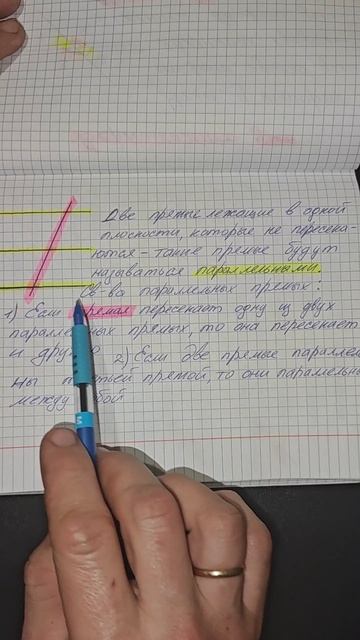 Две прямые лежащие в одной
плоскости, которые не пересека-
ются - такие прямые будут
называться параллельными.
Св-ва параллельных прямых:
1) Если прямая пересекает одну из двух
параллельных прямых, то она пересекает
и другую 2) Если две прямые параллель
ны третьей прямой, то они параллельны
между собой